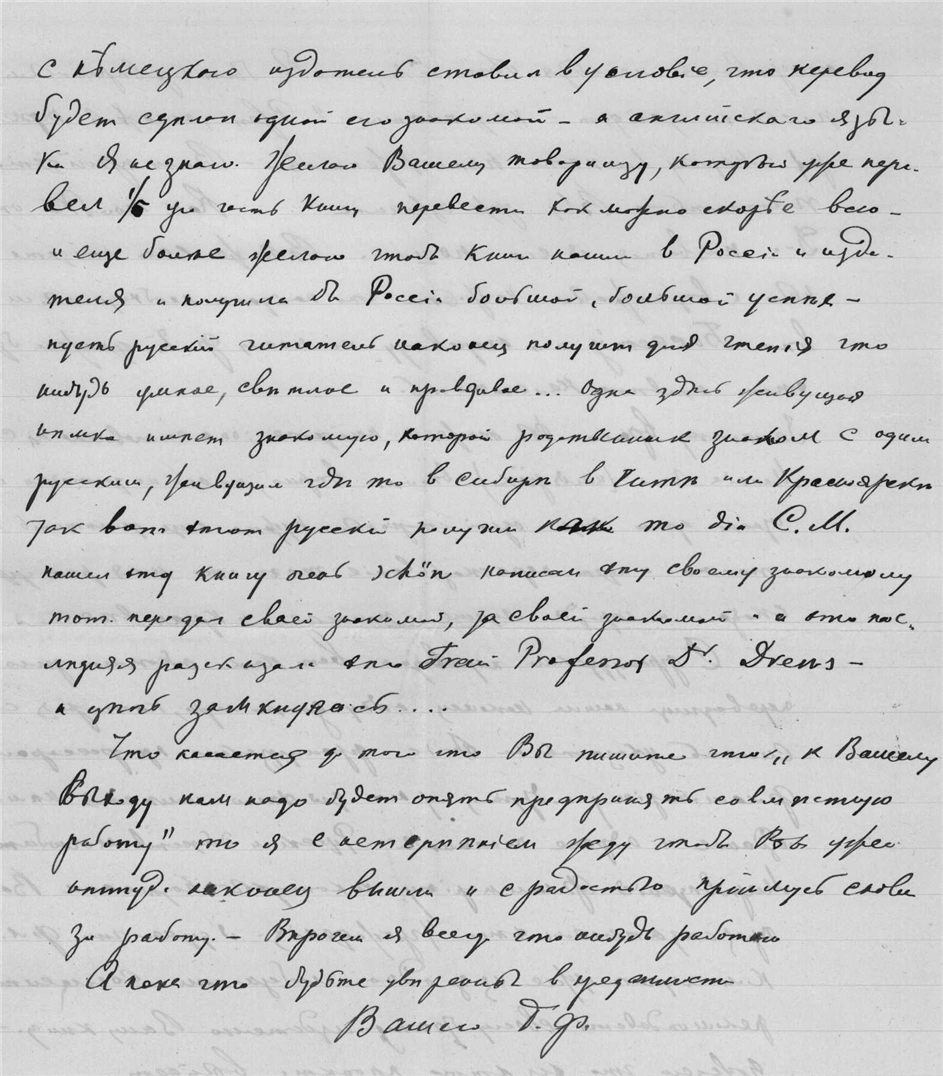 с нѣмецкого издатель ставил в условіе, что перевод
будет сдѣлан одной его знакомой – а английскаго язы-
ка я не знаю. Желаю Вашему товарищу, который уже пере-
вел 1/5 ую часть книги перевести как можно скорѣе всю –
и еще болѣе желаю чтобъ книга нашла в Россіи и изда-
теля и получила бъ Россіи большой, большой успѣх –
пусть русскій читатель наконец получит для чтенія что
нибудь умное, свѣтлое и правдивое... Одна здѣсь живущая
нѣмка имѣет знакомую, которой родственник знаком с одним
русским, живущим гдѣ то в Сибири в Читѣ или Красноярскѣ
так вот этот русскій получил то діа С.М.
нашел эту книгу очень schön написал эту своему знакомому
тот передал своей знакомой, та своей знакомой – а эта пос-
лѣдняя разсказала это Frau Professor Dr. Drews –
и цѣпь замкнулась....
Что касается до того что Вы пишите что „к Вашему
выходу нам надо будет опять предпринять совмѣстную
работу" то я с нетерпѣніем жду чтобъ Вы уже
оттуда наконец вышли и с радостью приймусь снова
за работу. – Впрочем я всегда что нибудь работаю
А пока что будьте увѣрены в преданности
Вашего Д. Ф.